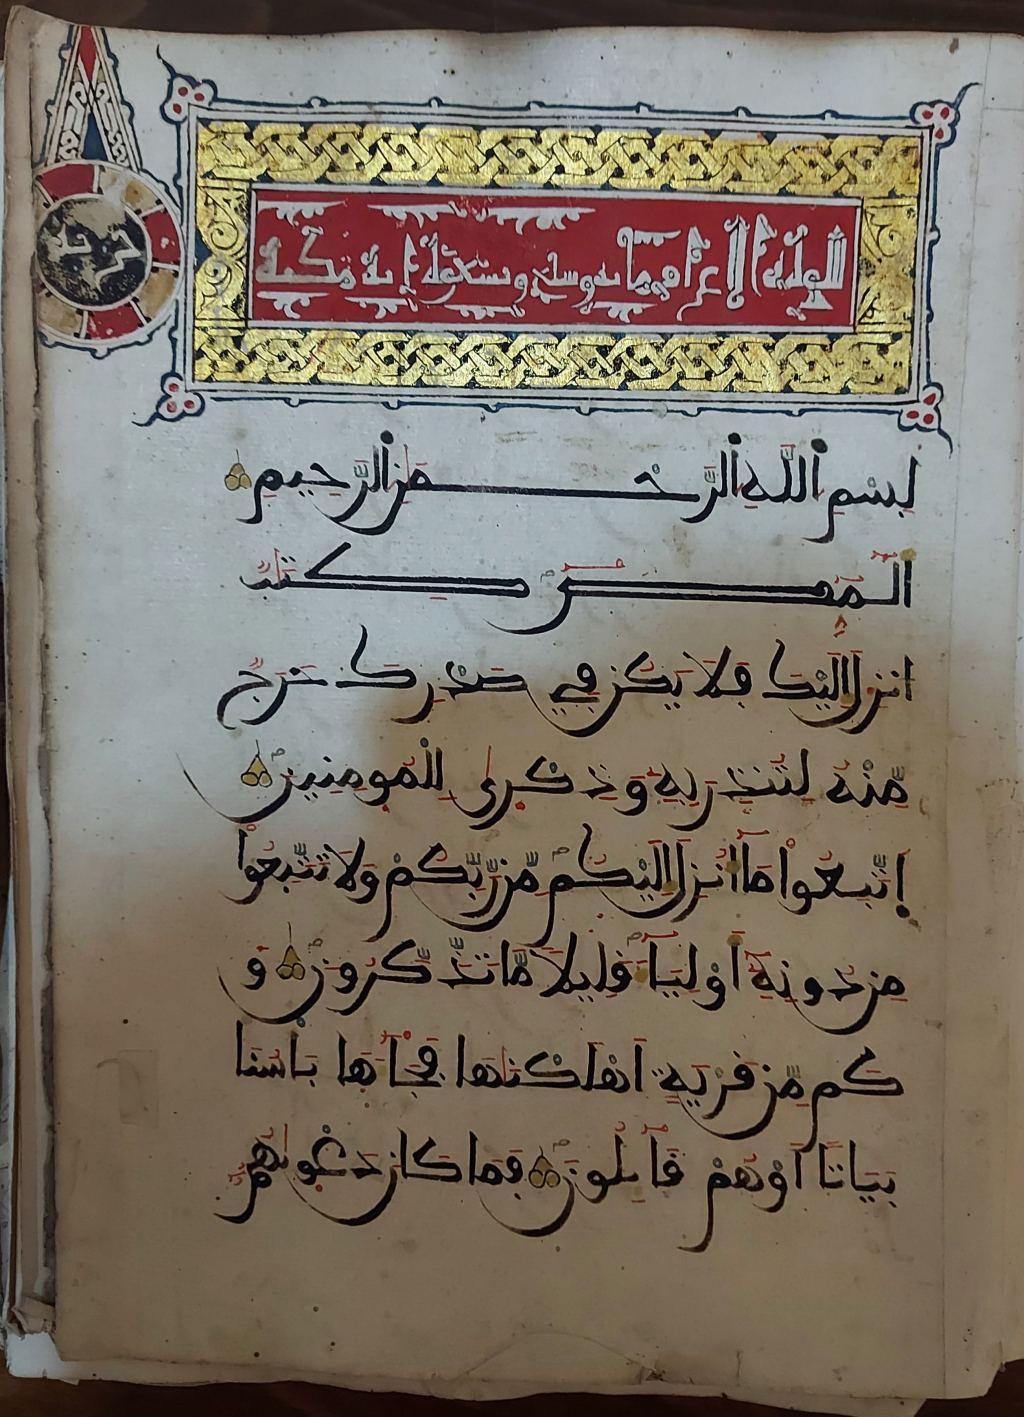 الاعراف اية مكية
حزب
بِسْمِ اِللَّهِ اِلرَّحْمَٰنِ اِلرَّحِيمِ
الٓمٓصٓ كِتَٰبٌ
انزِلَ إِلَيْكَ فَلَا يَكُن فِي صَدْرِكَ حَرَجٌ
مِّنْهُ لِتُنذِرَ بِهِ وَذِكْرَىٰ لِلْمُومِنِينَ
اِتَّبِعُواْ مَآ أُنزِلَ إِلَيْكُم مِّن رَّبِّكُمْ وَلَا تَتَّبِعُواْ
مِن دُونِهِ أَوْلِيَآءَ قَلِيلًا مَّا تَذَّكَّرُونَ وَ
كَم مِّن قَرْيَةٍ أَهْلَكْنَٰهَا فَجَآءَهَا بَأْسُنَا
بَيَاتًا أَوْ هُمْ قَآئِلُونَ فَمَا كَانَ دَعْوَىٰهُمُ